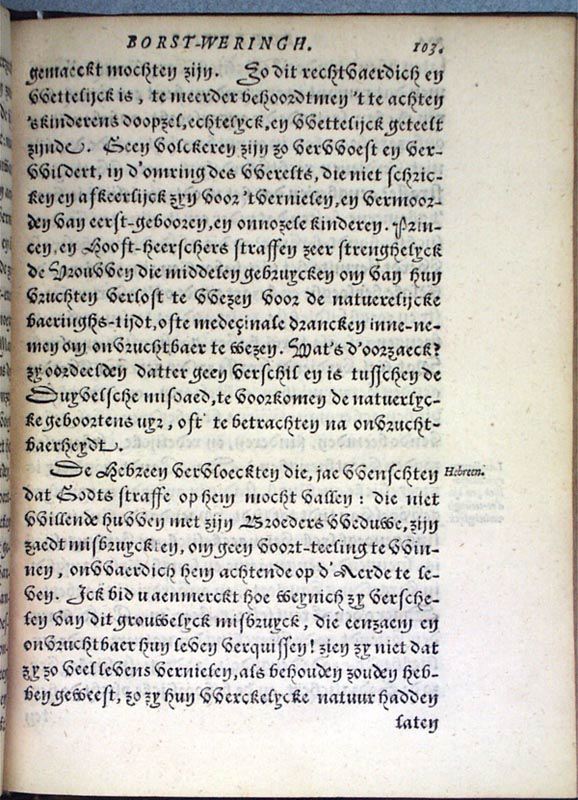 BORST-WERINGH. 103.
gemaeckt mochten zijn. Zo dit rechtvaerdich en
VVettelijck is, te meerder behoordtmen 't te achten
's kinderens doopzel, echtelyck, en VVettelijck geteelt
zijnde. Geen volckeren zijn zo verVVoest en ver-
VVildert, in d'omring des VVerelts, die niet schric-
ken en afkeerlijck zyn voor 't vernielen, en vermoor-
den van eerst-gebooren, en onnozele kinderen. Prin-
cen, en Hooft-heerschers straffen zeer strenghelyck
de VrouVVen die middelen gebruycken om van hun
vruchten verlost te VVezen voor de natuerelijcke
baeringhs-tijdt, ofte medeçinale drancken inne-ne-
men om onvruchtbaer te wezen. Wat's d'oorzaeck?
zy oordeelden datter geen verschil en is tusschen de
Duyvelsche misdaed, te voorkomen de natuerlyc-
ke geboortens uyr, oft te betrachten na onvrucht-
baerheydt.
De Hebreen vervloeckten die, jae VVenschten
Hebreen.
dat Godts straffe op hem mocht vallen: die niet
VVillende huVVen met zijn Broeders VVeduwe, zijn
zaedt misbruyckten, om geen voort-teeling te VVin-
nen, onVVaerdich hem achtende op d'Aerde te le-
ven. Ick bid u aenmerckt hoe weynich zy versche-
len van dit grouwelyck misbruyck, die eenzaem en
onvruchtbaer hun leven verquissen! zien zy niet dat
zy zo veel levens vernielen, als behouden zouden heb-
ben geweest, zo zy hun VVerckelycke natuur hadden
laten